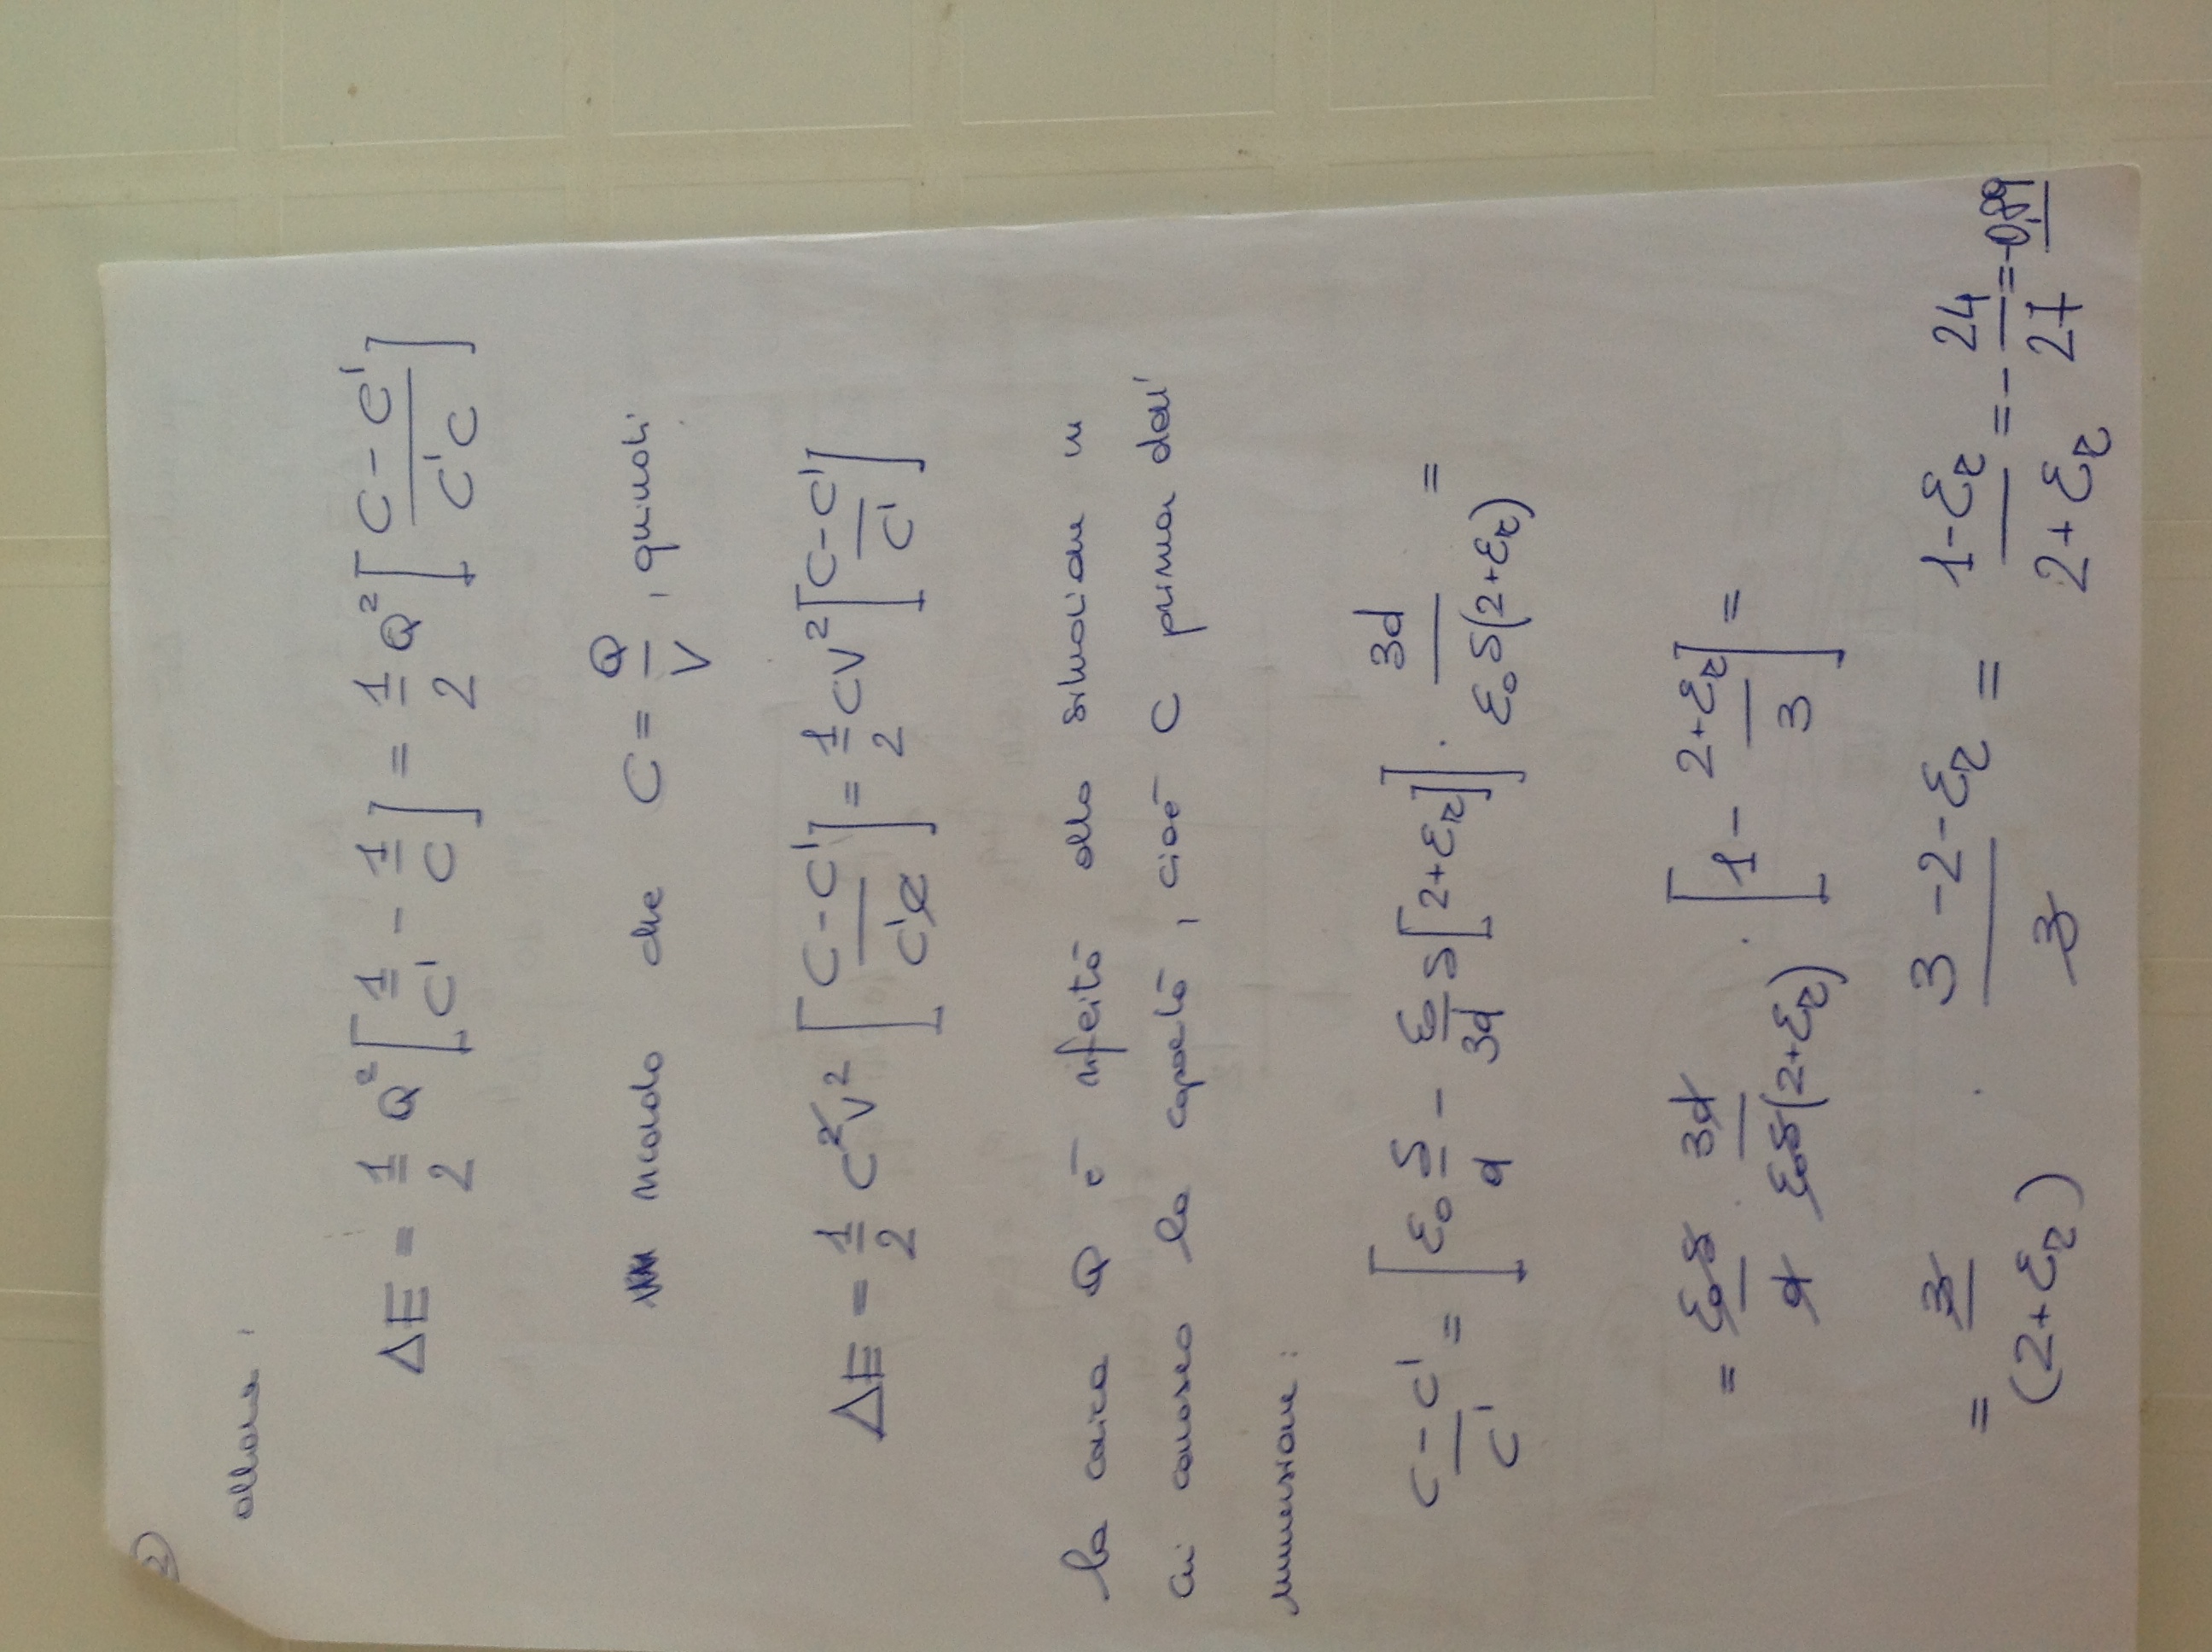 2
allora :
ΔE = 1/2 Q² [1/C' - 1/C] = 1/2 Q² [(C - C')/(C'C)]
ricordo che C = Q/V , quindi
ΔE = 1/2 C²V² [(C - C')/(C'C)] = 1/2 CV² [(C - C')/C']
la carica Q è riferita alla situazione in
cui conosco la capacità , cioè C prima dell'
immersione :
(C - C')/C' = [ε₀ S/d - ε₀/3d S[2+εr]] · 3d/(ε₀S(2+εr)) =
= ε₀S/d · 3d/(ε₀S(2+εr)) · [1 - (2+εr)/3] =
= 3/(2+εr) · (3-2-εr)/3 = (1-εr)/(2+εr) = - 24/27 = -0,89